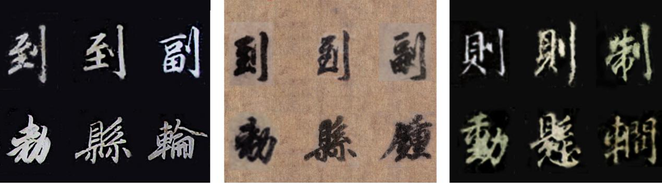 到 到 副
勃 縣 輪
到 到 副
勃 縣 鍾
則 則 制
動 懸 輞